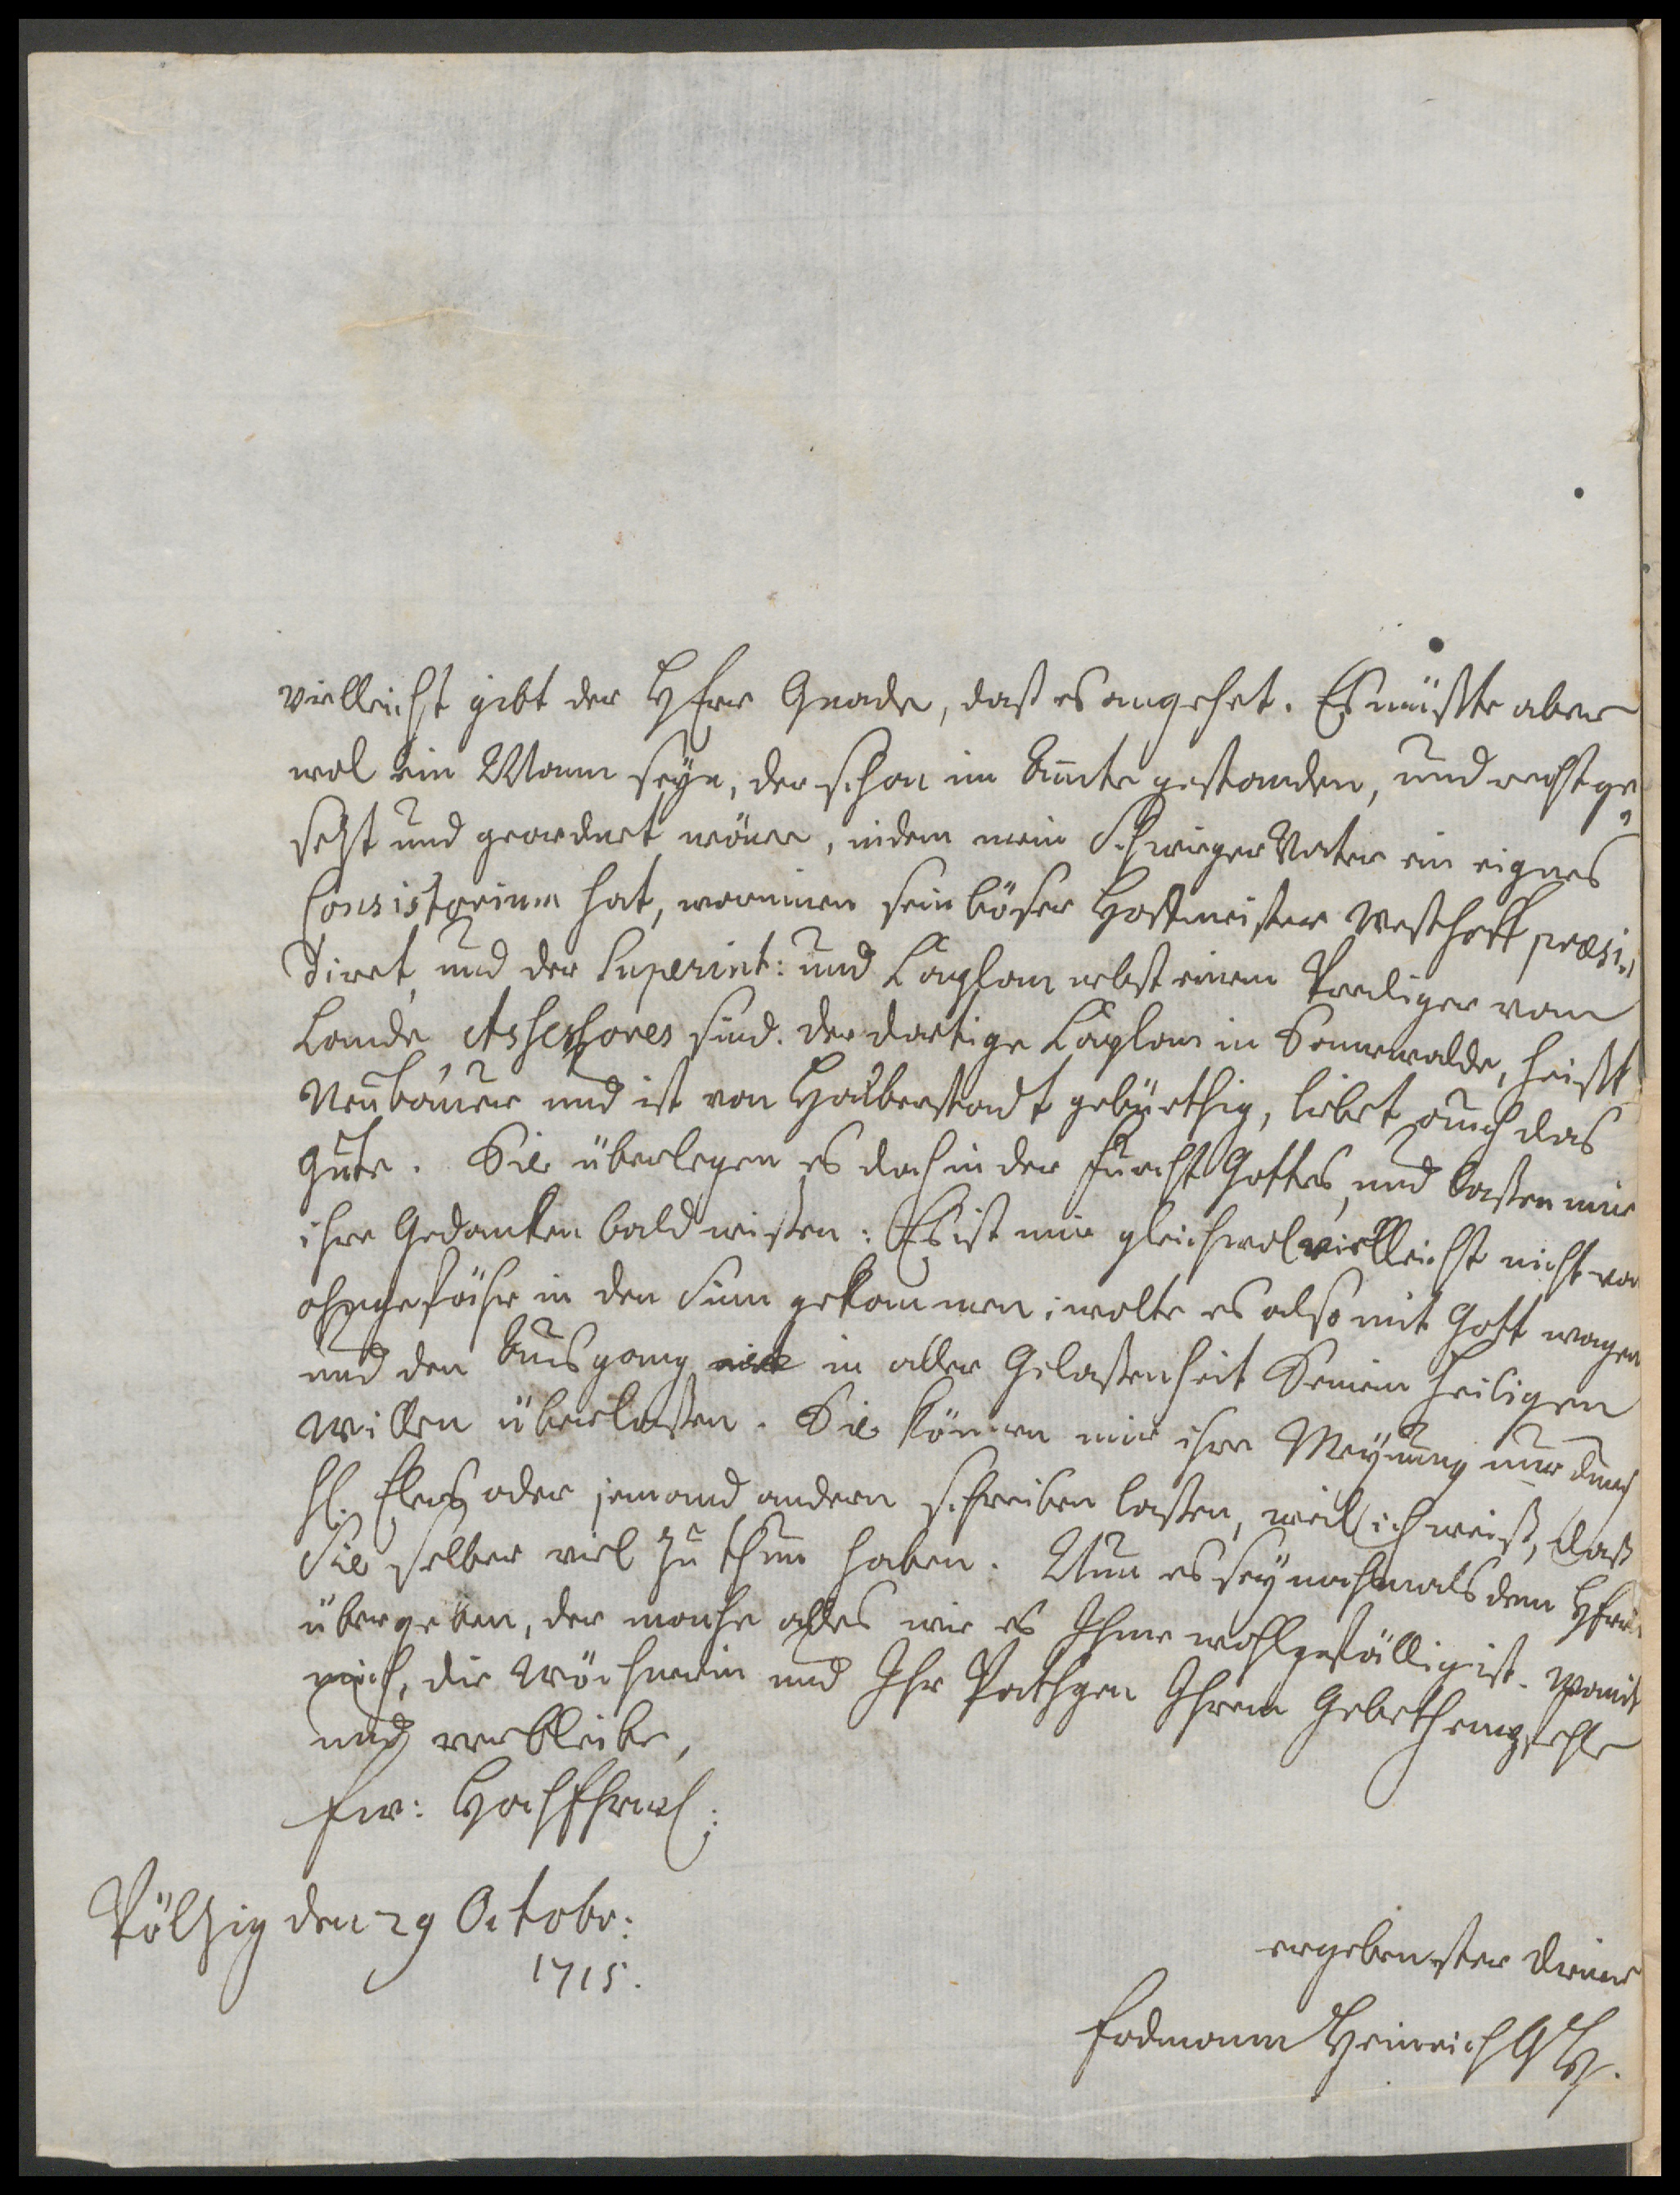 vielleicht gibt der HErr Gnade, daß es angehet. Es müßte aber
wol ein Mann seyn, der schon im Amte gestanden, und recht ge-
setzt und geordnet wäre, indem mein Schwieger Vater ein eignes
Consistorium hat, worinnen sein böser Hoffmeister Westhoff præsi-
diret, und der Superint: und Caplan nebst einem Prediger vom
Lande Assessores sind. der dortige Caplan in Sonnewalde, heißt
Neubauer und ist von Halberstadt gebürthig, liebet auch das
gute. Sie überlegen es doch in der Furcht Gottes, und laßen mir
ihre Gedanken bald wißen: Es ist mir gleichwol vielleicht nicht von
ohngefähr in den Sinn gekommen; wolte es also mit Gott wagen
und den Ausgang in aller Gelaßenheit Seinem heiligen
Willen überlaßen. Sie können mir ihre Meynung nur durch
H. Elers oder jemand andern schreiben laßen, weil ich weiß, daß
Sie selber viel zu thun haben. Nun es sey nochmals dem HErrn
übergeben, der mache alles wie es Ihme wohlgefällig ist. Womit
mich, die Wöchnerin und Ihr Pathgen Ihrem Gebeth empfehle
und verbleibe,
Ew: HochEhrw:
Pöltzig den 29 Octobr:
1715.
ergebenster Diener
Erdmann Heinrich G H.